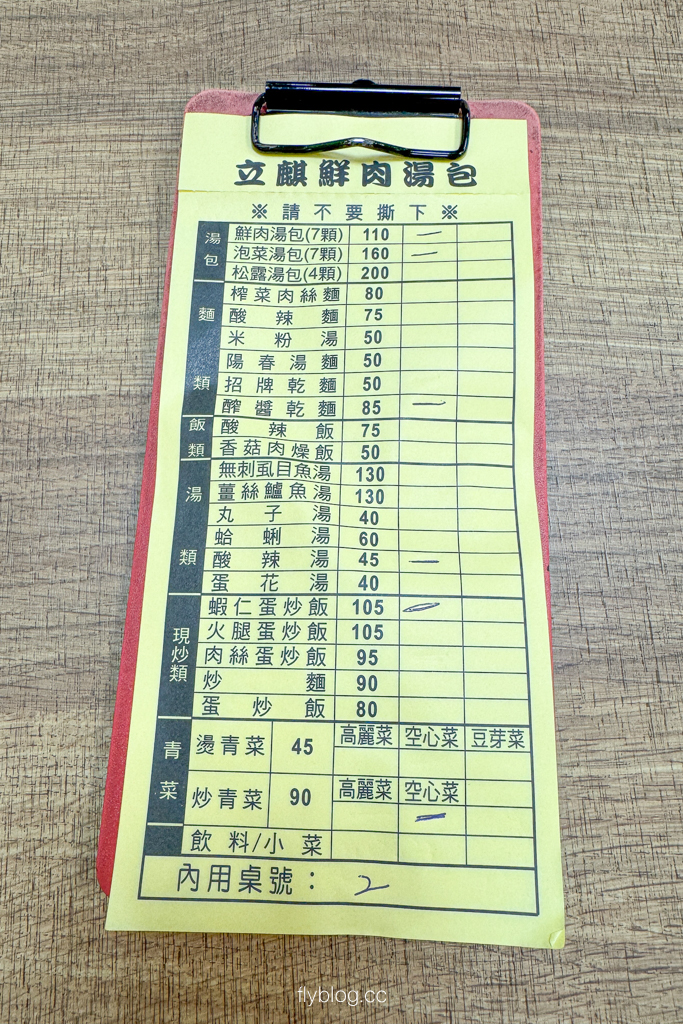 立麒鮮肉湯包
※請不要撕下※
湯包
鮮肉湯包(7顆) 110 一
泡菜湯包(7顆) 160 一
松露湯包(4顆) 200
麵類
榨菜肉絲麵 80
酸辣麵 75
米粉湯 50
陽春湯麵 50
招牌乾麵 50
醡醬乾麵 85 一
飯類
酸辣飯 75
香菇肉燥飯 50
湯類
無刺虱目魚湯 130
薑絲鱸魚湯 130
丸子湯 40
蛤蜊湯 60
酸辣湯 45 一
蛋花湯 40
現炒類
蝦仁蛋炒飯 105 一
火腿蛋炒飯 105
肉絲蛋炒飯 95
炒麵 90
蛋炒飯 80
青菜
燙青菜 45 高麗菜 空心菜 豆芽菜
炒青菜 90 高麗菜 空心菜
一
飲料/小菜
內用桌號： 2
flyblog.cc